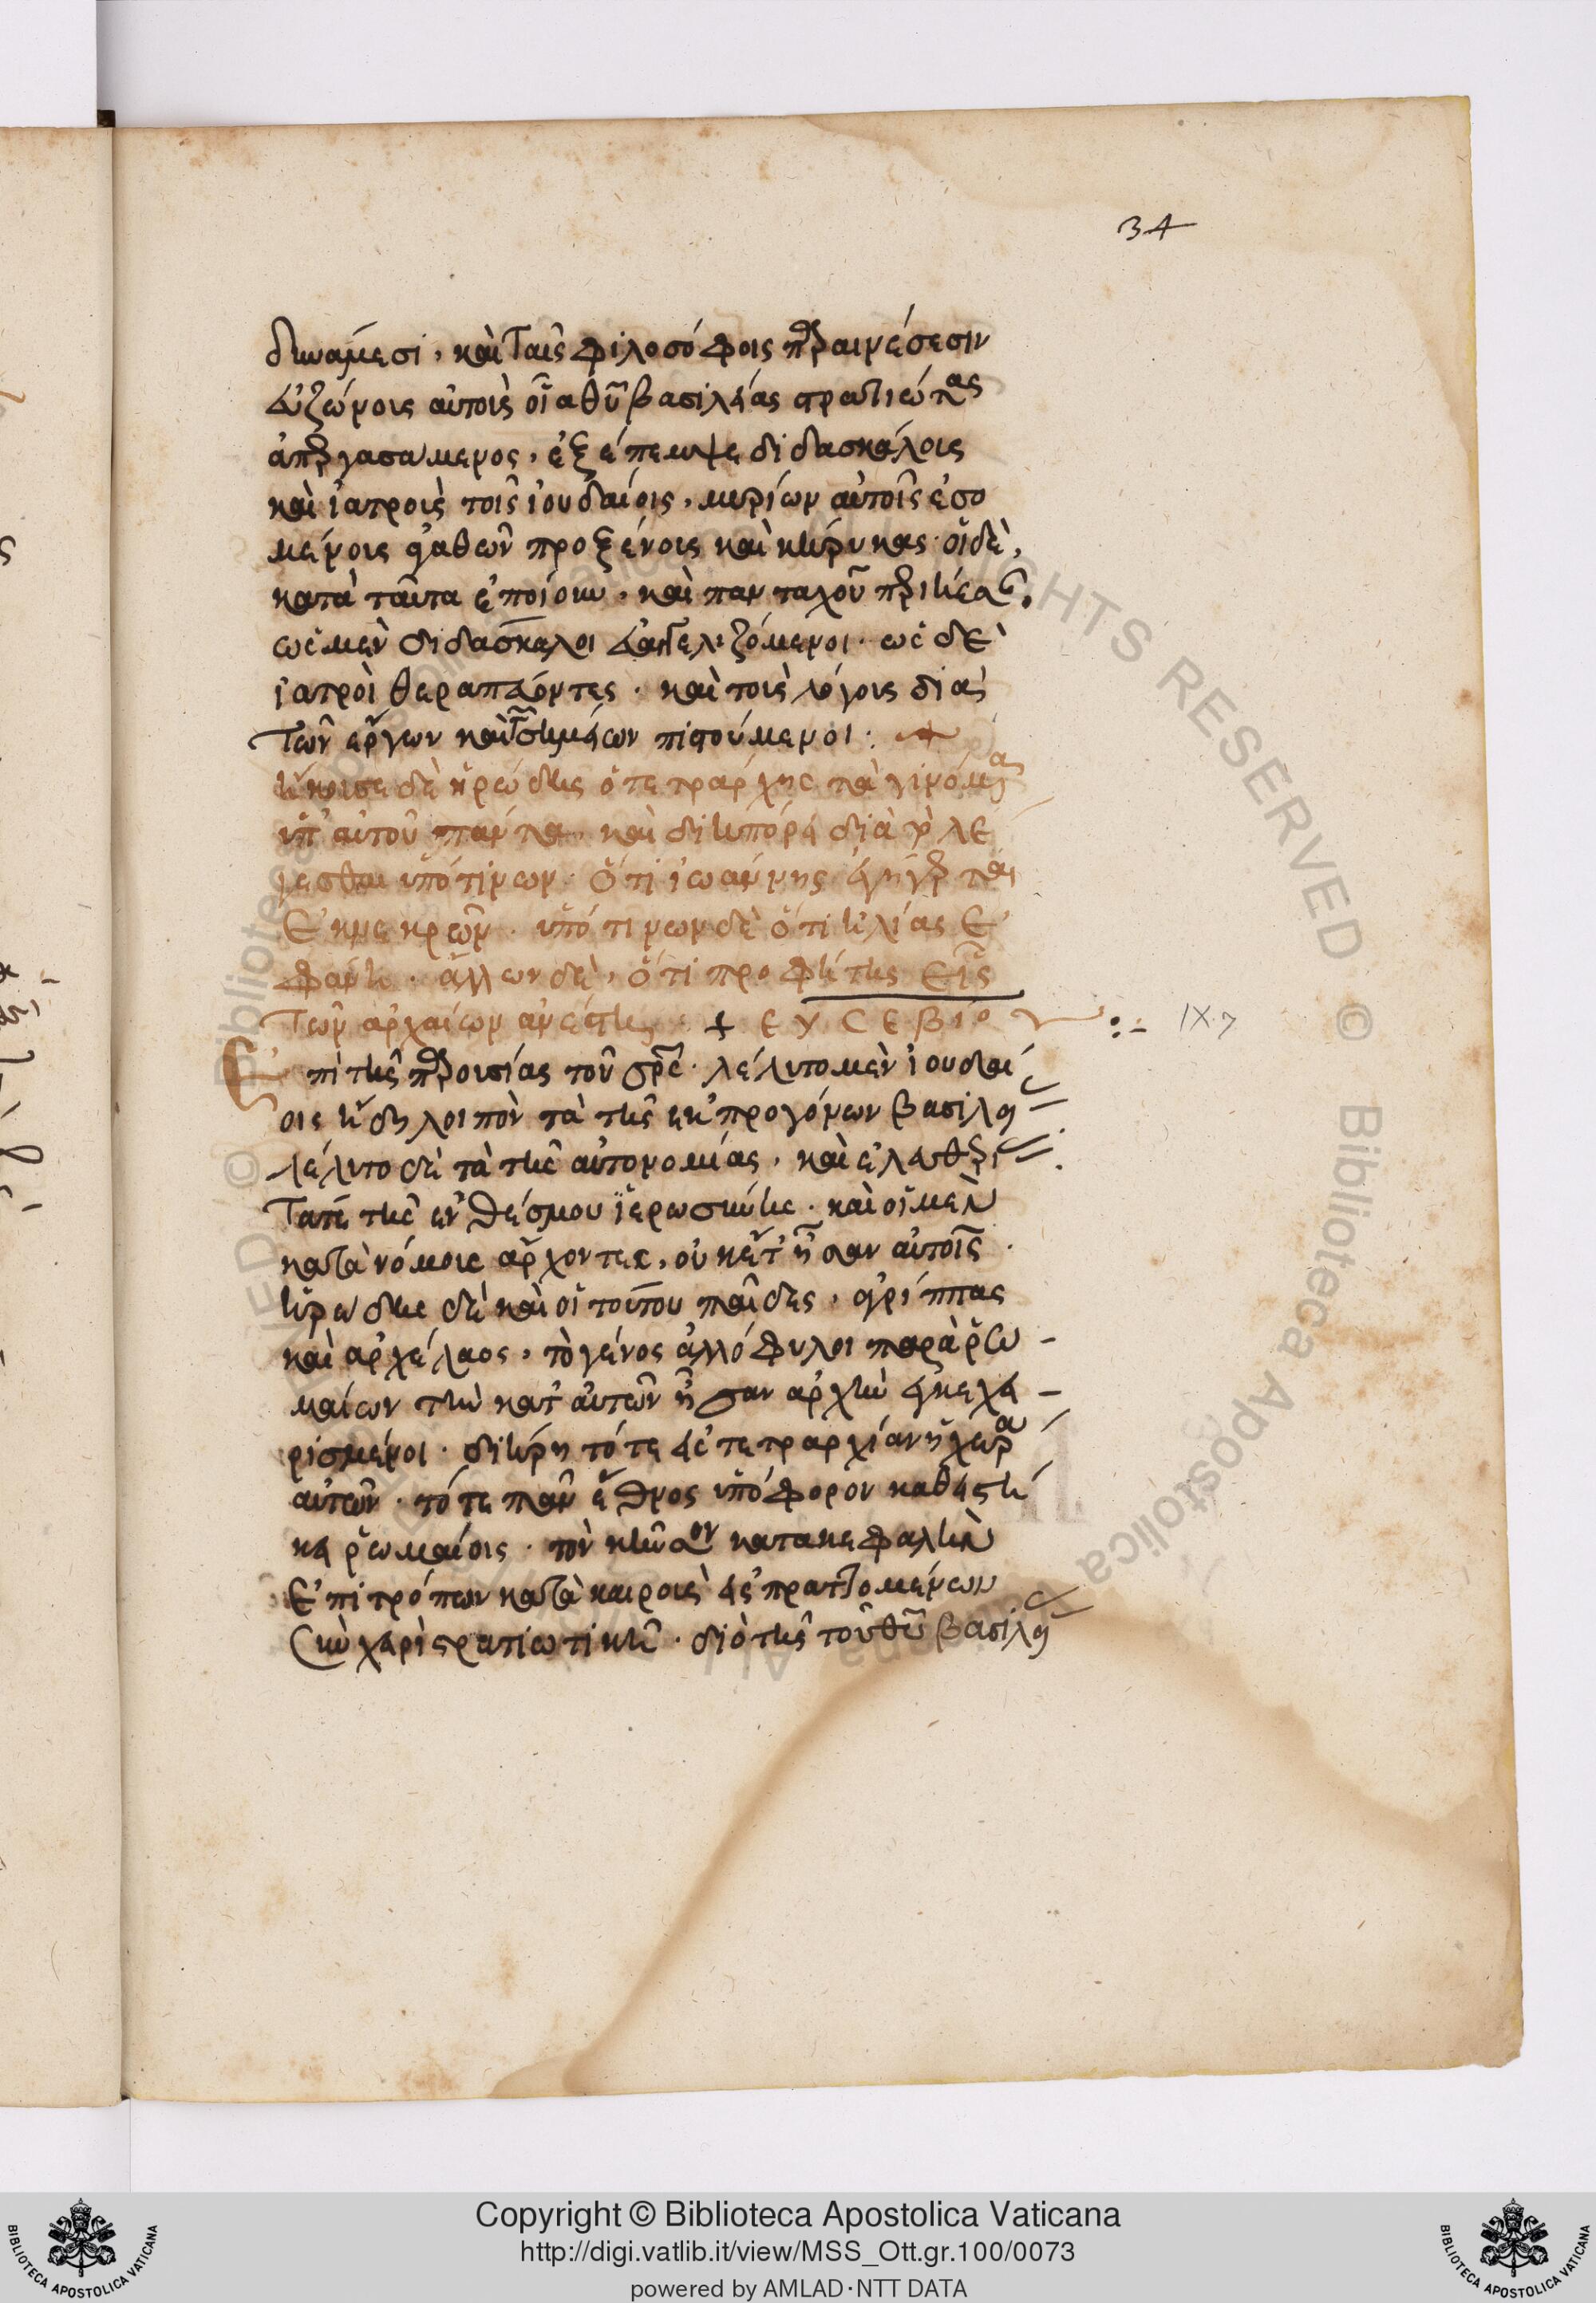 34
δυνάμεσι, καὶ ταῖς φιλοσόφοις παραινέσεσιν
εὐζώνους αὐτοὺς οἷα θῦ βασιλείας στρατιώτας
ἀπεργασάμενος, ἐξέπεμψε διδασκάλους
καὶ ἰατροὺς τοῖς ἰουδαίοις, μυρίων αὐτοῖς ἐσο
μένους ἀγαθῶν προξένους καὶ κήρυκας· οἱ δὲ,
κατὰ ταῦτα ἐποίουν, καὶ πανταχοῦ περιήεσαν.
ὡς μὲν διδάσκαλοι εὐαγγελιζόμενοι· ὡς δὲ
ἰατροὶ θεραπεύοντες· καὶ τοὺς λόγους διὰ
τῶν ἔργων καὶ τῶν σημείων πιστούμενοι:
ἤκουσε δὲ ἡρώδης ὁ τετράρχης τὰ γινόμενα
ὑπ' αὐτοῦ πάντα· καὶ διηπόρει διὰ τὸ λέ
γεσθαι ὑπό τινων· ὅτι ἰωάννης ἐγήγερται
ἐκ νεκρῶν· ὑπό τινων δὲ ὅτι ἠλίας ἐ
φάνη· ἄλλων δὲ, ὅτι προφήτης εἷς
τῶν ἀρχαίων ἀνέστη· + ΕΥСΕΒΙΟΥ :- IX.7
Ἐπὶ τῆς παρουσίας τοῦ σρς· λέλυτο μὲν ἰουδαί
οις ἤδη λοιπὸν τὰ τῆς ἐκ προγόνων βασιλείας
λέλυτο δὲ τὰ τῆς αὐτονομίας, καὶ ἐλευθερίας.
τά τε τῆς ἐνθέσμου ἱερωσύνης· καὶ οἱ μὲν
κατὰ νόμους ἄρχοντες, οὐκέτ' ἦσαν αὐτοῖς·
ἡρώδης δὲ καὶ οἱ τούτου παῖδες, ἀγρίππας
καὶ ἀρχέλαος, τὸ γένος ἀλλόφυλοι παρὰ ῥω-
μαίων τὴν κατ' αὐτῶν ἦσαν ἀρχὴν ἐγκεχει-
ρισμένοι· διῄρητό τε εἰς τετραρχίαν ἡ χώρα
αὐτῶν· τό τε πᾶν ἔθνος ὑπόφορον καθειστή
κει ῥωμαίοις· τὸν κῆνσον κατὰ κεφαλὴν
ἐπιτρόπων κατὰ καιροὺς εἰσπραττομένων
σὺν χειρὶ στρατιωτικῇ· διὸ τῆς τοῦ θῦ βασιλείας
Copyright © Biblioteca Apostolica Vaticana
http://digi.vatlib.it/view/MSS_Ott.gr.100/0073
powered by AMLAD·NTT DATA
BIBLIOTECA APOSTOLICA VATICANA
BIBLIOTECA APOSTOLICA VATICANA